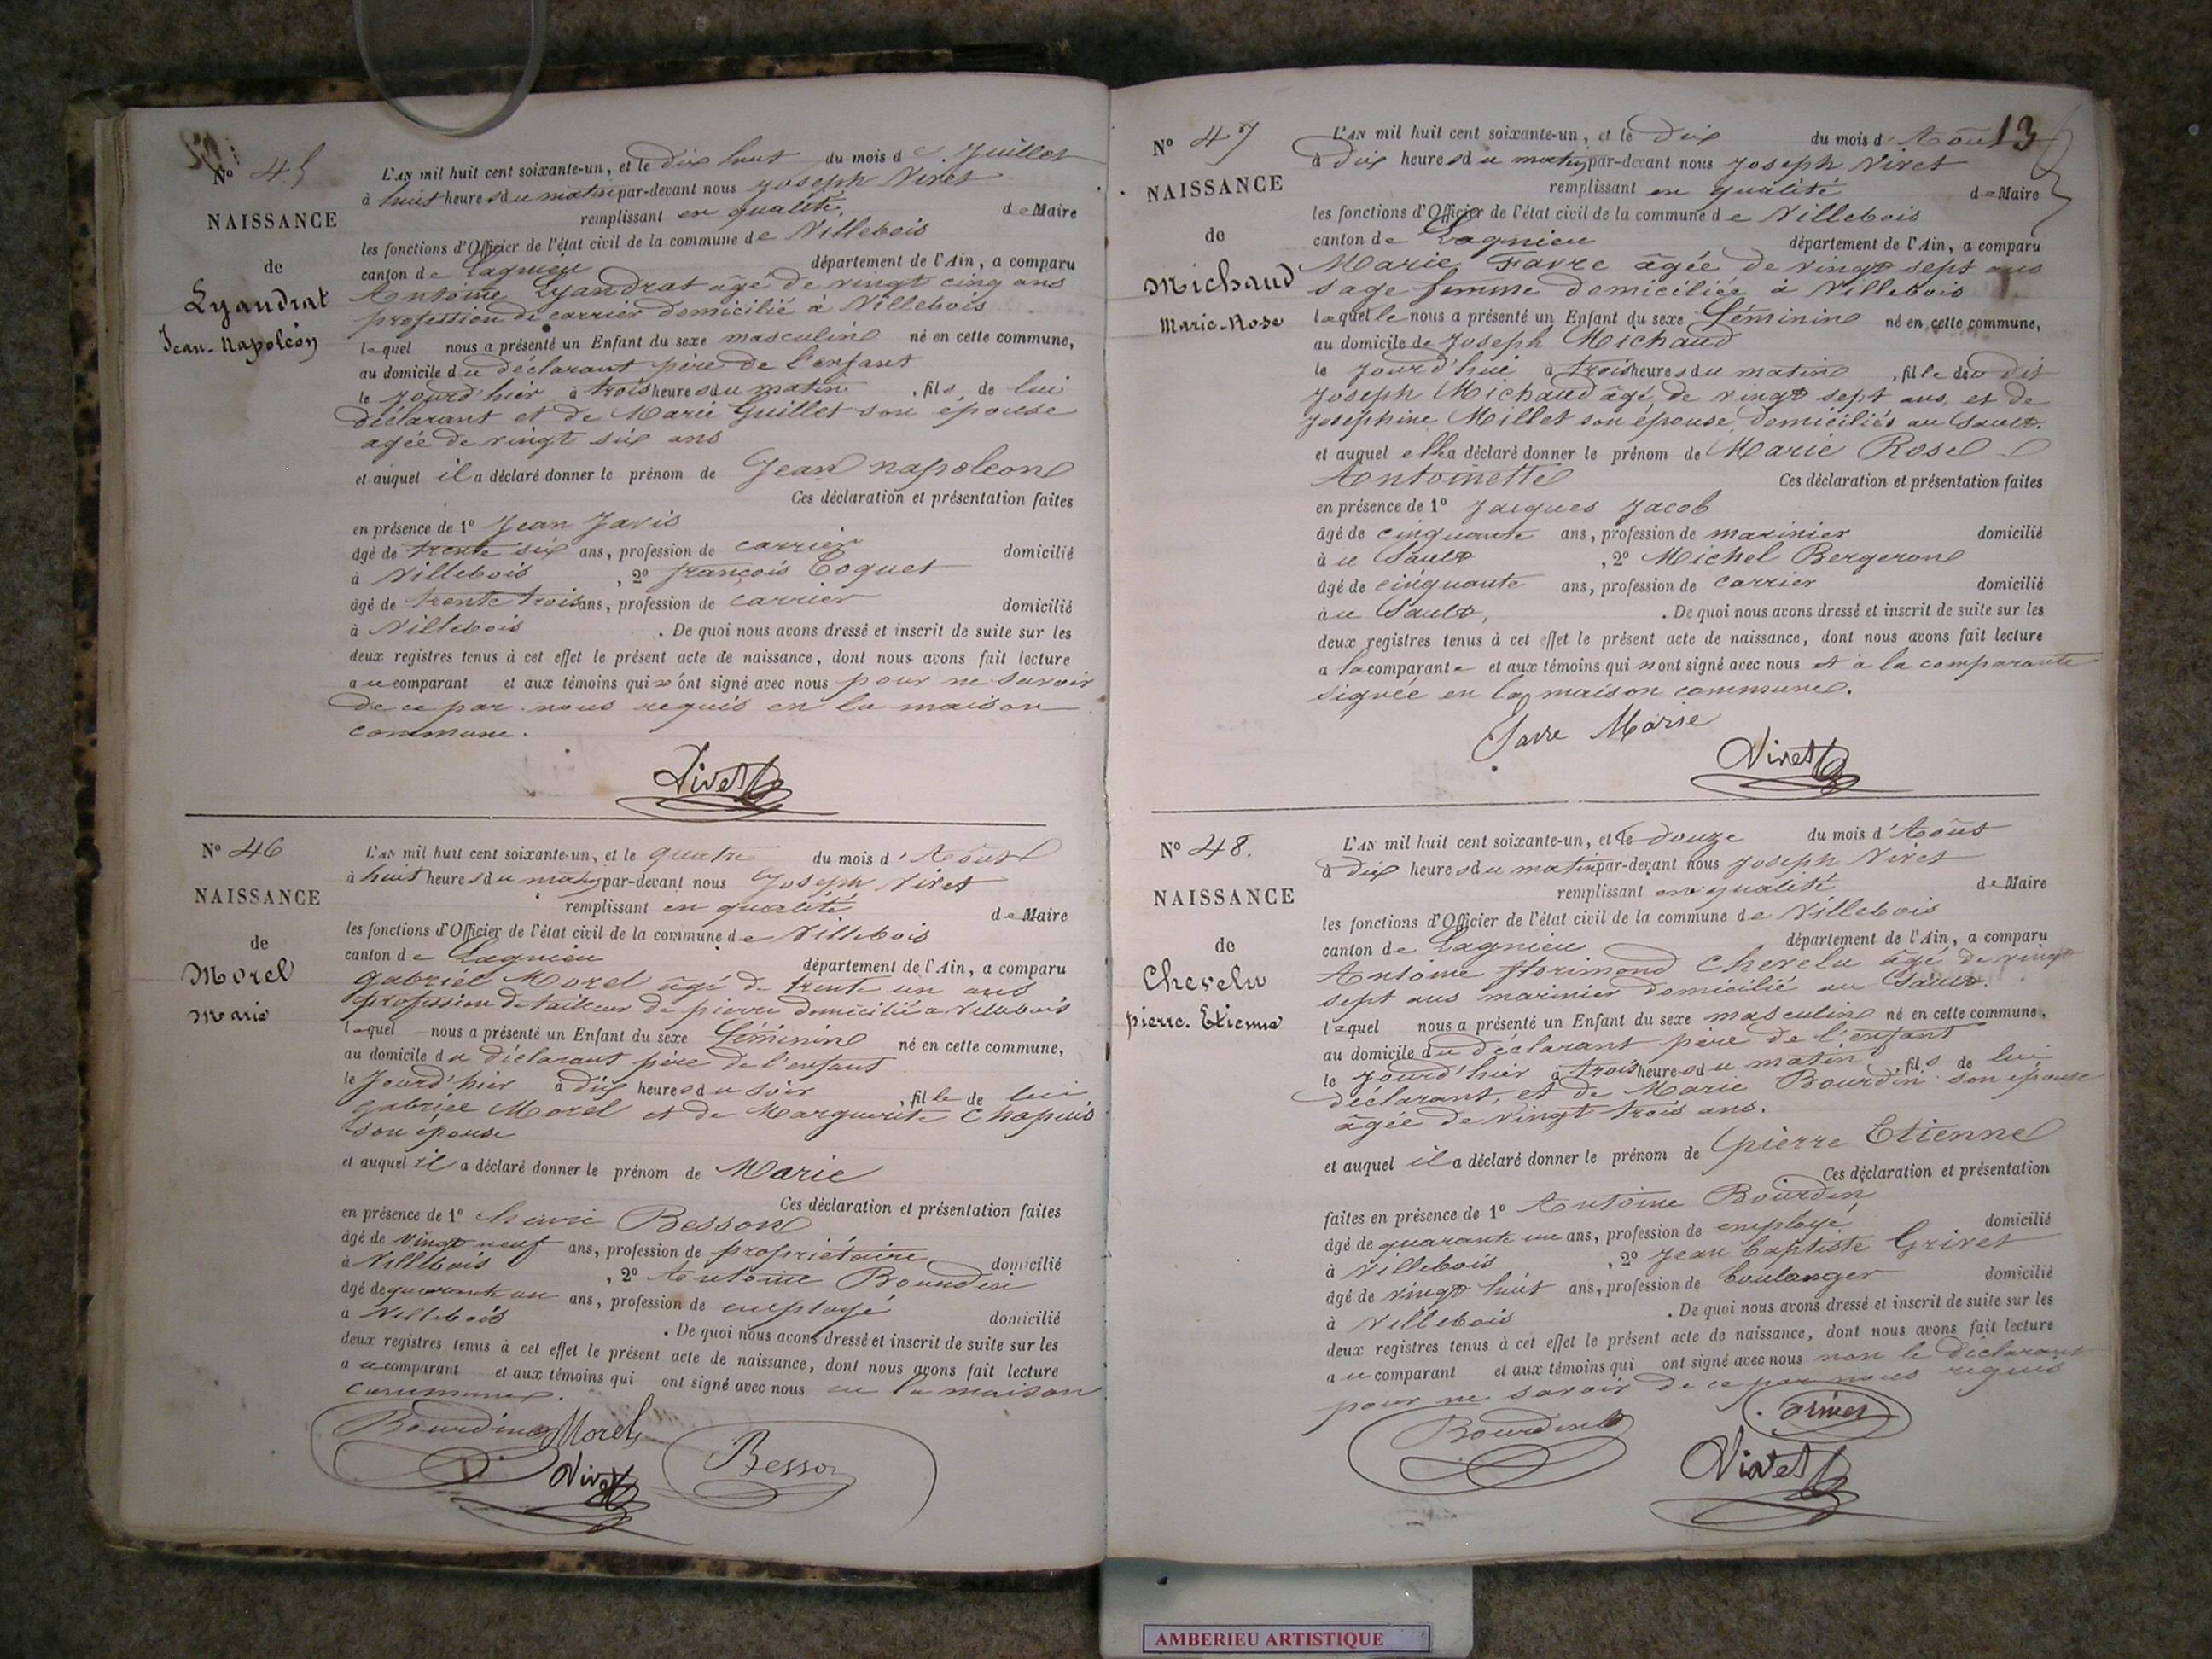 N° 45
NAISSANCE
de
Lyandrat
Jean-Napoléon
L'AN mil huit cent soixante-un, et le dix huit du mois de Juillet
à huit heures du matin par-devant nous Joseph Vivet
remplissant en qualité de Maire
les fonctions d'Officier de l'état civil de la commune de Villebois
canton de Lagnieu département de l'Ain, a comparu
Antoine Lyandrat âgé de vingt cinq ans
profession de carrier domicilié à Villebois
lequel nous a présenté un Enfant du sexe masculin né en cette commune,
au domicile du déclarant père de l'enfant
le jourd'hier à trois heures du matin, fils de lui
déclarant et de Marie Guillet son épouse
agée de vingt six ans
et auquel il a déclaré donner le prénom de Jean napoleon
Ces déclaration et présentation faites
en présence de 1° Jean Javis
âgé de trente six ans, profession de carrier domicilié
à Villebois, 2° françois Coquet
âgé de trente trois ans, profession de carrier domicilié
à Villebois. De quoi nous avons dressé et inscrit de suite sur les
deux registres tenus à cet effet le présent acte de naissance, dont nous avons fait lecture
au comparant et aux témoins qui n'ont signé avec nous pour ne savoir
de ce par nous requis en la maison
commune.
Vivet
N° 46
NAISSANCE
de
Morel
Marie
L'AN mil huit cent soixante-un, et le quatre du mois d'Août
à huit heures du matin par-devant nous Joseph Vivet
remplissant en qualité de Maire
les fonctions d'Officier de l'état civil de la commune de Villebois
canton de Lagnieu département de l'Ain, a comparu
gabriel Morel âgé de trente un ans
profession de tailleur de pierre domicilié a Villebois
lequel nous a présenté un Enfant du sexe féminin né en cette commune,
au domicile du déclarant père de l'enfant
le jourd'hier à dix heures du soir, fille de lui
gabriel Morel et de Marguerite Chapuis
son épouse
et auquel il a déclaré donner le prénom de Marie
Ces déclaration et présentation faites
en présence de 1° henri Besson
âgé de vingt neuf ans, profession de propriétaire domicilié
à Villebois, 2° Antoine Bourdin
âgé de quarante un ans, profession de employé domicilié
à Villebois. De quoi nous avons dressé et inscrit de suite sur les
deux registres tenus à cet effet le présent acte de naissance, dont nous avons fait lecture
au comparant et aux témoins qui ont signé avec nous en la maison
commune.
Bourdin Morel
Vivet Besson
13
N° 47
NAISSANCE
de
Michaud
Marie-Rose
L'AN mil huit cent soixante-un, et le dix du mois d'Août
à dix heures du matin par-devant nous Joseph Vivet
remplissant en qualité de Maire
les fonctions d'Officier de l'état civil de la commune de Villebois
canton de Lagnieu département de l'Ain, a comparu
Marie Favre âgée de vingt sept ans
sage femme domiciliée à Villebois
laquelle nous a présenté un Enfant du sexe féminin né en cette commune,
au domicile de Joseph Michaud
le jourd'hui à trois heures du matin, fille du dit
Joseph Michaud âgé de vingt sept ans, et de
Josephine Millet son épouse, domiciliés au Sault.
et auquel elle a déclaré donner le prénom de Marie Rose
Antoinette Ces déclaration et présentation faites
en présence de 1° Jacques Jacob
âgé de cinquante ans, profession de marinier domicilié
au Sault, 2° Michel Bergeron
âgé de cinquante ans, profession de carrier domicilié
au Sault,. De quoi nous avons dressé et inscrit de suite sur les
deux registres tenus à cet effet le présent acte de naissance, dont nous avons fait lecture
a la comparante et aux témoins qui n'ont signé avec nous et à la comparante
signée en la maison commune.
Favre Marie
Vivet
N° 48.
NAISSANCE
de
Chevelu
pierre-Etienne
L'AN mil huit cent soixante-un, et le douze du mois d'Août
à dix heures du matin par-devant nous Joseph Vivet
remplissant en qualité de Maire
les fonctions d'Officier de l'état civil de la commune de Villebois
canton de Lagnieu département de l'Ain, a comparu
Antoine florimond Chevelu âgé de vingt
sept ans marinier domicilié au Sault.
lequel nous a présenté un Enfant du sexe masculin né en cette commune,
au domicile du déclarant père de l'enfant
le jourd'hier à trois heures du matin, fils de lui
déclarant, et de Marie Bourdin son épouse
âgée de vingt trois ans.
et auquel il a déclaré donner le prénom de pierre Etienne
Ces déclaration et présentation
faites en présence de 1° Antoine Bourdin
âgé de quarante un ans, profession de employé domicilié
à Villebois, 2° Jean baptiste Grivet
âgé de vingt huit ans, profession de boulanger domicilié
à Villebois. De quoi nous avons dressé et inscrit de suite sur les
deux registres tenus à cet effet le présent acte de naissance, dont nous avons fait lecture
au comparant et aux témoins qui ont signé avec nous non le déclarant
pour ne savoir de ce par nous requis
Bourdin
Vivet
AMBERIEU ARTISTIQUE